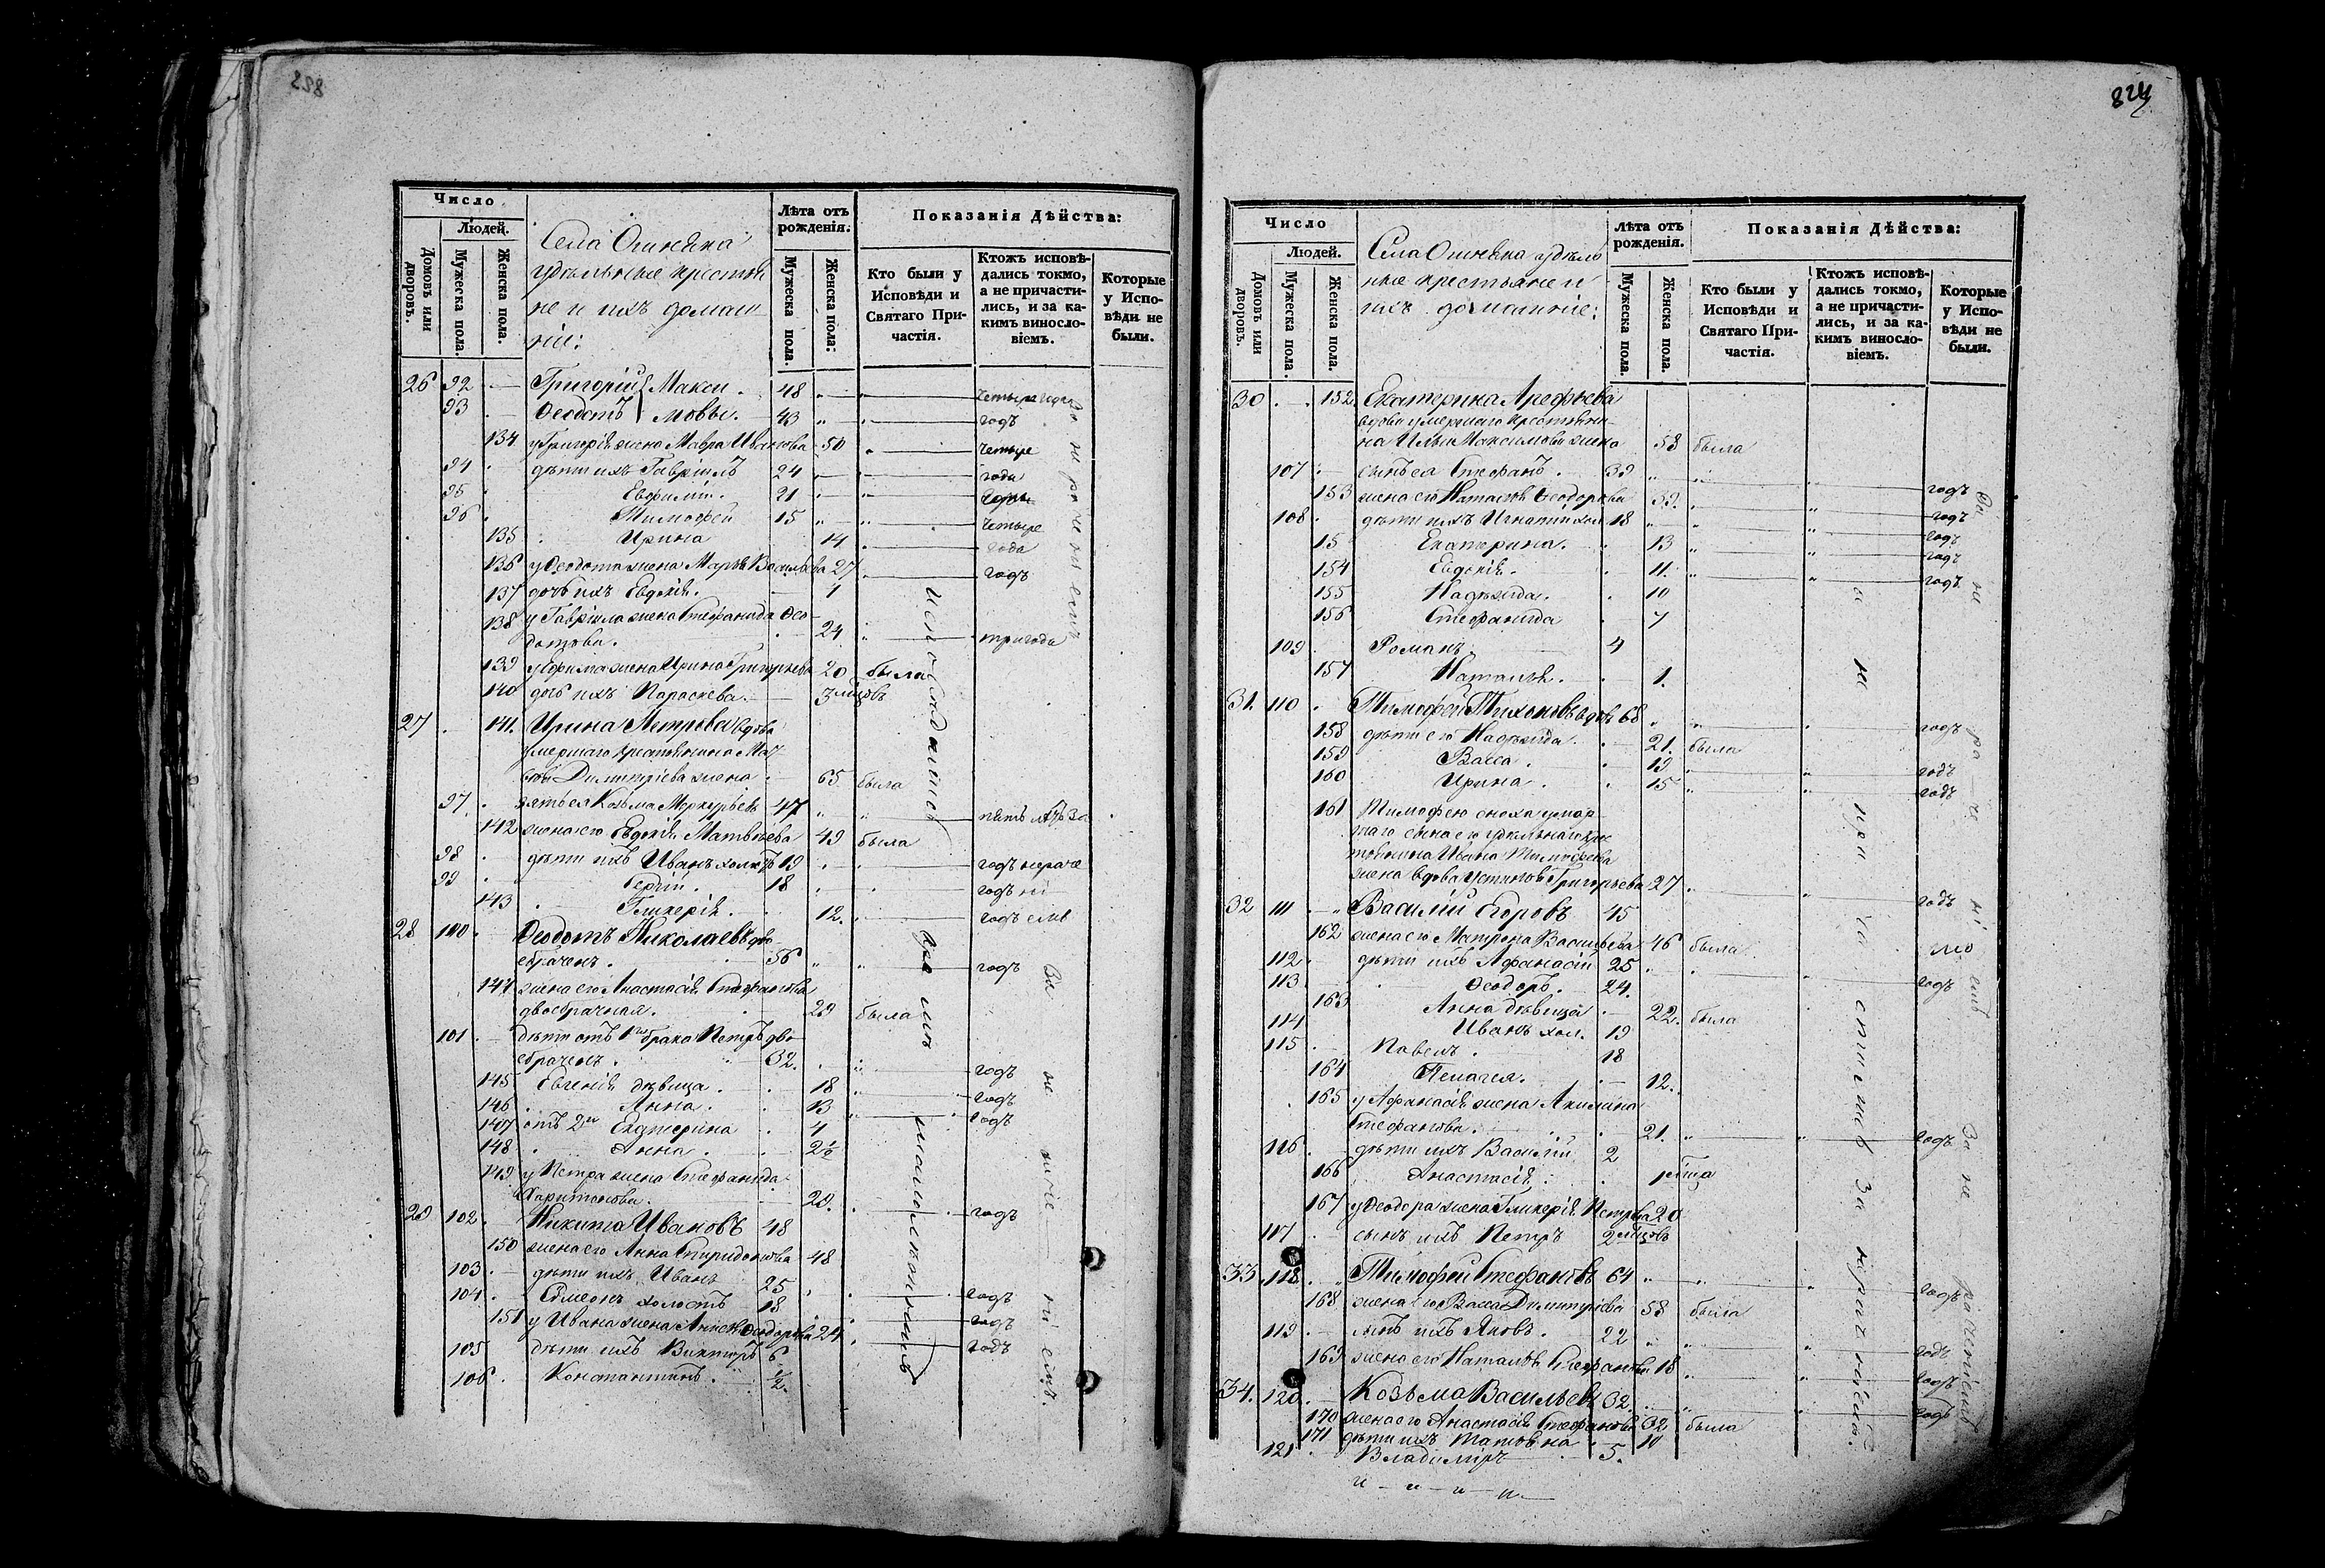 828
Число
Людей.
Домовъ или дворовъ.
Мужеска пола.
Женска пола.
Села
удѣльные крестья
не и ихъ домаш
ніе:
Лѣта отъ рожденія.
Мужеска пола.
Женска пола:
Показанія Дѣйства:
Кто были у Исповѣди и Святаго Причастія.
Ктожъ исповѣдались токмо, а не причастились, и за какимъ винословіемъ.
Которые у Исповѣди не были.
26 92 Григорій Макси 48 четыре года
93 Ѳеодотъ мовы 43 годъ
134 у Григорія жена Мавра Иванова 50 четыре
94 дѣти ихъ Гавріилъ 24 года
95 Евфимій 21
96 Тимофей 15 четыре
135 Ирина 14 года
136 у Ѳеодота жена Марья Васильева 27 годъ
137 дочь ихъ Евдокія 1
138 у Гавріила жена Стефанида Ѳео-
дотова. 24 три года
139 у Ефима жена Ирина Григорьева 20 была
140 дочь ихъ Параскева 3 мѣсцовъ
27 141. Ирина Петрова вдова
умершаго крестьянина Мат
Димитріева жена 65 была
97 зять ея Козьма Меркурьевъ 47 пять лѣтъ За
142 жена его Евдокія Матвѣева 49 была
98 дѣти ихъ Иванъ холостъ 19 годъ нераче
99 Сергій 18 годъ ні
143 Гликерія 12. годъ емъ
28 100 Ѳеодотъ Николаевъ дво
ебраченъ 56 годъ
144 жена его Анастасія Стефанова
двоебрачная. 29 была
101 дѣти отъ 1го брака Петръ дво
ебраченъ. 32. годъ
145 Евгенія дѣвица 18 годъ
146 Анна 13 годъ
147 отъ 2го Екатерина 4
148 Анна 2½
149 у Петра жена Стефанида
Харитонова 20. годъ
29 102 Никита Ивановъ 48
150 жена его Анна Спиридонова 48
103 дѣти ихъ Иванъ 25 годъ
104 Симеонъ холостъ 18 годъ
151 у Ивана жена Ѳеодорова 24 годъ
105 дѣти ихъ Викторъ 6
106 Константинъ ½
За не раче ні емъ
824
Число
Людей.
Домовъ или дворовъ.
Мужеска пола.
Женска пола.
Села удѣль
ные крестьяне и
ихъ домашніе:
Лѣта отъ рожденія.
Мужеска пола.
Женска пола.
Показанія Дѣйства:
Кто были у Исповѣди и Святаго Причастія.
Ктожъ исповѣдались токмо, а не причастились, и за какимъ винословіемъ.
Которые у Исповѣди не были.
30 152 Екатерина Арефьева
вдова умершаго крестьяни-
на Ильи Максимова жена 58 была
107 сынъ ея Стефанъ 39 годъ
153 жена его Наталья Ѳеодорова 39. годъ
108 дѣти ихъ Игнатій хол. 18 годъ
15 Екатерина. 13 годъ
154 Евдокія. 11. годъ
155 Надежда. 10
156 Стефанида 7
109 Романъ. 4
157 Наталья. 1.
31. 110 Тимофей Тихоновъ вдовъ 68 годъ
158 дѣти его Надежда. 21. была
159 Васса. 19 годъ
160 Ирина. 15 годъ
161 Тимофею сноха умер
шаго сына его удѣльнаго кре
стьянина Ивана Тимофеева
жена вдова Устинья Григорьева 27 годъ
32 111 Василій Егоровъ 45
162 жена его Матрона Васильева 46 была
112 дѣти ихъ Афанасій 25 годъ
113 Ѳеодоръ. 24.
163 Анна дѣвица 22. была
114 Иванъ хол. 19
115 Павелъ. 18
164 Пелагея. 12.
165 у Афанасія жена Акилина
Стефанова. 21. годъ
116 дѣти ихъ Василій 2
166 Анастасія
167 у Ѳеодора жена Гликерія Петрова 20
117 сынъ ихъ Петръ 2 мѣсцовъ
33 118 Тимофей Стефановъ 64 годъ
168 жена его Васса Димитріева 58 была
119 сынъ ихъ Яковъ. 22 годъ
169 жена его Наталья Стефанова 18 годъ
34. 120 Козьма Васильевъ 32. годъ
170 жена его Анастасія Стефанова 32 была
171 дѣти ихъ Татьяна 10
121 Владиміръ 5.